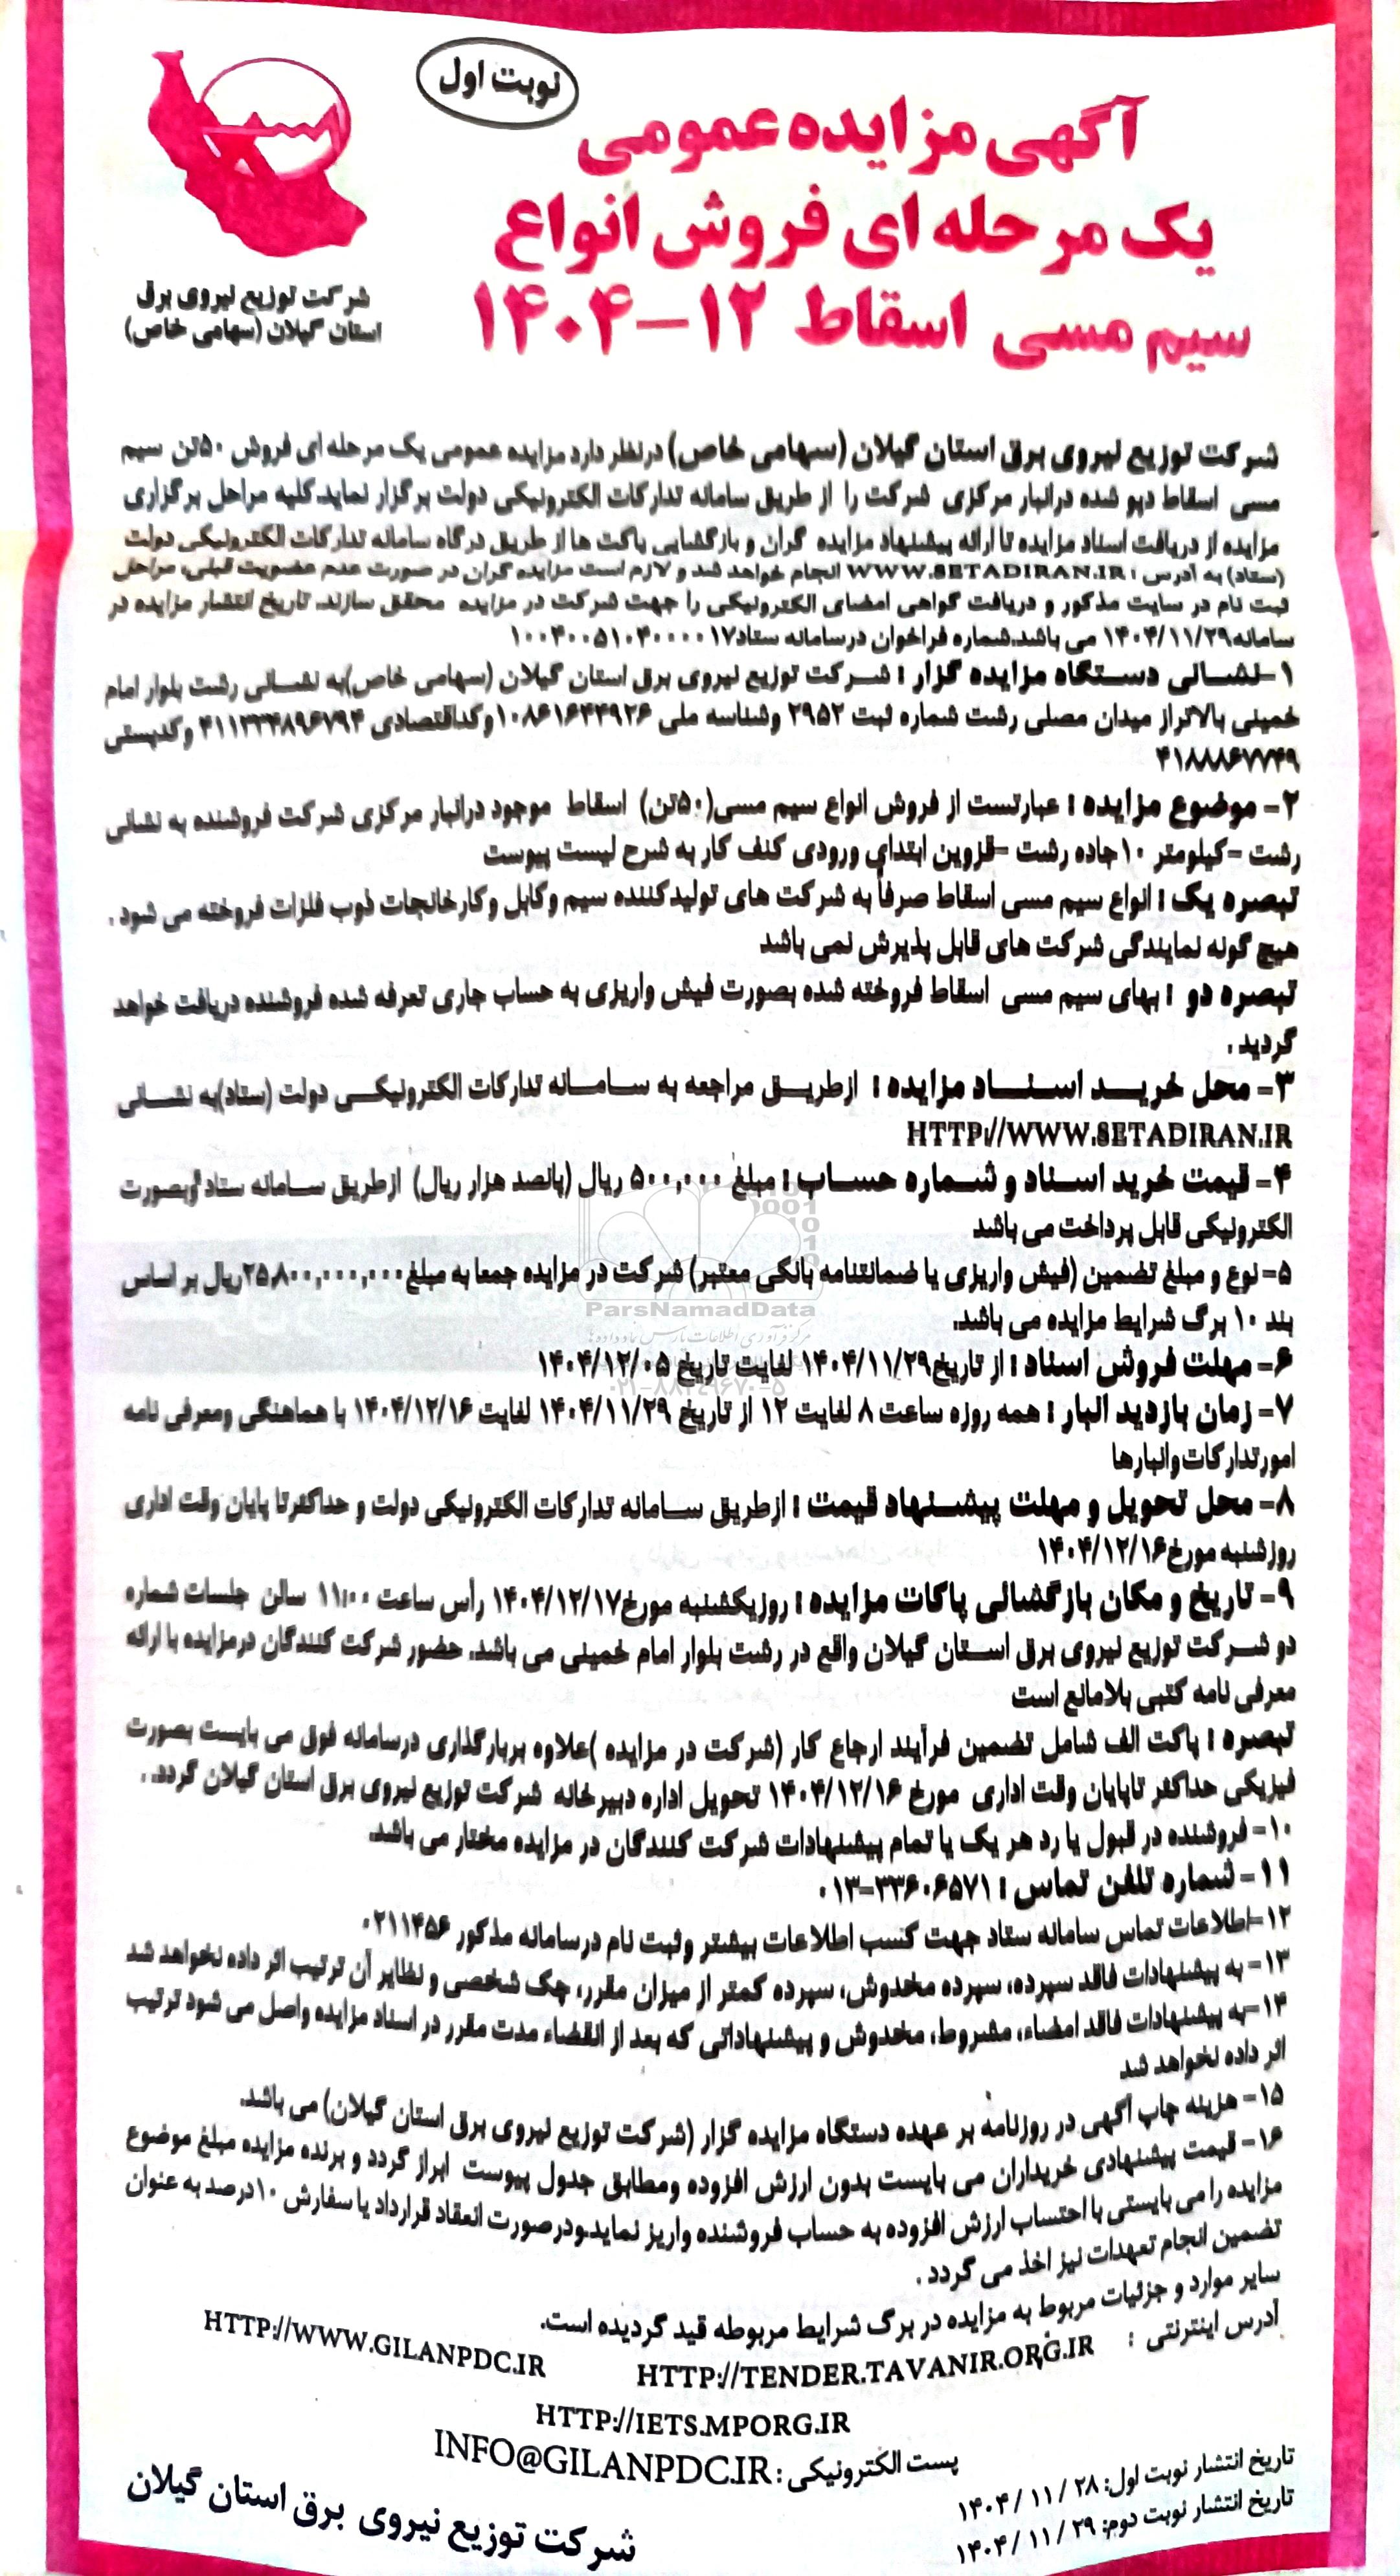 نوبت اول
آگهی مزایده عمومی
یک مرحله ای فروش انواع
سیم مسی اسقاط ۱۲-۱۴۰۴
شرکت توزیع نیروی برق
استان گیلان (سهامی خاص)
شرکت توزیع نیروی برق استان گیلان (سهامی خاص) درنظر دارد مزایده عمومی یک مرحله ای فروش ۵۰تن سیم
مسی اسقاط دپو شده درانبار مرکزی شرکت را از طریق سامانه تدارکات الکترونیکی دولت برگزار نماید.کلیه مراحل برگزاری
مزایده از دریافت اسناد مزایده تا ارائه پیشنهاد مزایده گران و بازگشایی پاکت ها از طریق درگاه سامانه تدارکات الکترونیکی دولت
(ستاد) به آدرس : WWW.SETADIRAN.IR انجام خواهد شد و لازم است مزایده گران در صورت عدم عضویت قبلی، مراحل
ثبت نام در سایت مذکور و دریافت گواهی امضای الکترونیکی را جهت شرکت در مزایده محقق سازند. تاریخ انتشار مزایده در
سامانه۱۴۰۴/۱۱/۲۹ می باشد.شماره فراخوان درسامانه ستاد۱۰۰۴۰۰۵۱۰۴۰۰۰۰۱۷
۱-نشانی دستگاه مزایده گزار : شرکت توزیع نیروی برق استان گیلان (سهامی خاص)به نشانی رشت بلوار امام
خمینی بالاتراز میدان مصلی رشت شماره ثبت ۲۹۵۲ وشناسه ملی ۱۰۸۶۱۶۴۴۹۲۶وکداقتصادی ۴۱۱۳۳۴۸۹۶۷۹۴ وکدپستی
۴۱۸۸۸۶۷۷۴۹
۲- موضوع مزایده : عبارتست از فروش انواع سیم مسی(۵۰تن) اسقاط موجود درانبار مرکزی شرکت فروشنده به نشانی
رشت -کیلومتر ۱۰جاده رشت -قزوین ابتدای ورودی کنف کار به شرح لیست پیوست
تبصره یک : انواع سیم مسی اسقاط صرفاً به شرکت های تولیدکننده سیم وکابل وکارخانجات ذوب فلزات فروخته می شود .
هیچ گونه نمایندگی شرکت های قابل پذیرش نمی باشد
تبصره دو : بهای سیم مسی اسقاط فروخته شده بصورت فیش واریزی به حساب جاری تعرفه شده فروشنده دریافت خواهد
گردید .
۳- محل خرید اسناد مزایده : ازطریق مراجعه به سامانه تدارکات الکترونیکی دولت (ستاد)به نشانی
HTTP://WWW.SETADIRAN.IR
۴- قیمت خرید اسناد و شماره حساب : مبلغ ۵۰۰,۰۰۰ ریال (پانصد هزار ریال) ازطریق سامانه ستاد وبصورت
الکترونیکی قابل پرداخت می باشد
۵-نوع و مبلغ تضمین (فیش واریزی یا ضمانتنامه بانکی معتبر) شرکت در مزایده جمعا به مبلغ۲۵,۸۰۰,۰۰۰,۰۰۰ریال بر اساس
بند ۱۰ برگ شرایط مزایده می باشد.
ParsNamadData
مرکز فرآوری اطلاعات پارس نماد داده ها
۶- مهلت فروش اسناد : از تاریخ۱۴۰۴/۱۱/۲۹ لغایت تاریخ ۱۴۰۴/۱۲/۰۵
۰۲۱-۸۸۳۴۹۶۷۰-۵
۷- زمان بازدید انبار : همه روزه ساعت ۸ لغایت ۱۲ از تاریخ ۱۴۰۴/۱۱/۲۹ لغایت ۱۴۰۴/۱۲/۱۶ با هماهنگی ومعرفی نامه
امورتدارکات وانبارها
۸- محل تحویل و مهلت پیشنهاد قیمت : ازطریق سامانه تدارکات الکترونیکی دولت و حداکثرتا پایان وقت اداری
روزشنبه مورخ۱۴۰۴/۱۲/۱۶
۹- تاریخ و مکان بازگشائی پاکات مزایده : روزیکشنبه مورخ۱۴۰۴/۱۲/۱۷ رأس ساعت ۱۱:۰۰ سالن جلسات شماره
دو شرکت توزیع نیروی برق استان گیلان واقع در رشت بلوار امام خمینی می باشد. حضور شرکت کنندگان درمزایده با ارائه
معرفی نامه کتبی بلامانع است
تبصره : پاکت الف شامل تضمین فرآیند ارجاع کار (شرکت در مزایده )علاوه بربارگذاری درسامانه فوق می بایست بصورت
فیزیکی حداکثر تاپایان وقت اداری مورخ ۱۴۰۴/۱۲/۱۶ تحویل اداره دبیرخانه شرکت توزیع نیروی برق استان گیلان گردد. .
۱۰- فروشنده در قبول یا رد هر یک یا تمام پیشنهادات شرکت کنندگان در مزایده مختار می باشد.
۱۱- شماره تلفن تماس : ۳۳۶۰۶۵۷۱-۰۱۳
۱۲-اطلاعات تماس سامانه ستاد جهت کسب اطلاعات بیشتر وثبت نام درسامانه مذکور ۰۲۱۱۴۵۶
۱۳- به پیشنهادات فاقد سپرده، سپرده مخدوش، سپرده کمتر از میزان مقرر، چک شخصی و نظایر آن ترتیب اثر داده نخواهد شد
۱۴-به پیشنهادات فاقد امضاء، مشروط، مخدوش و پیشنهاداتی که بعد از انقضاء مدت مقرر در اسناد مزایده واصل می شود ترتیب
اثر داده نخواهد شد
۱۵- هزینه چاپ آگهی در روزنامه بر عهده دستگاه مزایده گزار (شرکت توزیع نیروی برق استان گیلان) می باشد.
۱۶- قیمت پیشنهادی خریداران می بایست بدون ارزش افزوده ومطابق جدول پیوست ابراز گردد و برنده مزایده مبلغ موضوع
مزایده را می بایستی با احتساب ارزش افزوده به حساب فروشنده واریز نماید.ودرصورت انعقاد قرارداد یا سفارش ۱۰درصد به عنوان
تضمین انجام تعهدات نیز اخذ می گردد .
سایر موارد و جزئیات مربوط به مزایده در برگ شرایط مربوطه قید گردیده است.
آدرس اینترنتی : HTTP://TENDER.TAVANIR.ORG.IR HTTP://WWW.GILANPDC.IR
HTTP://IETS.MPORG.IR
پست الکترونیکی : INFO@GILANPDC.IR
تاریخ انتشار نوبت اول: ۲۸ / ۱۱ / ۱۴۰۴
تاریخ انتشار نوبت دوم: ۲۹ / ۱۱ / ۱۴۰۴
شرکت توزیع نیروی برق استان گیلان